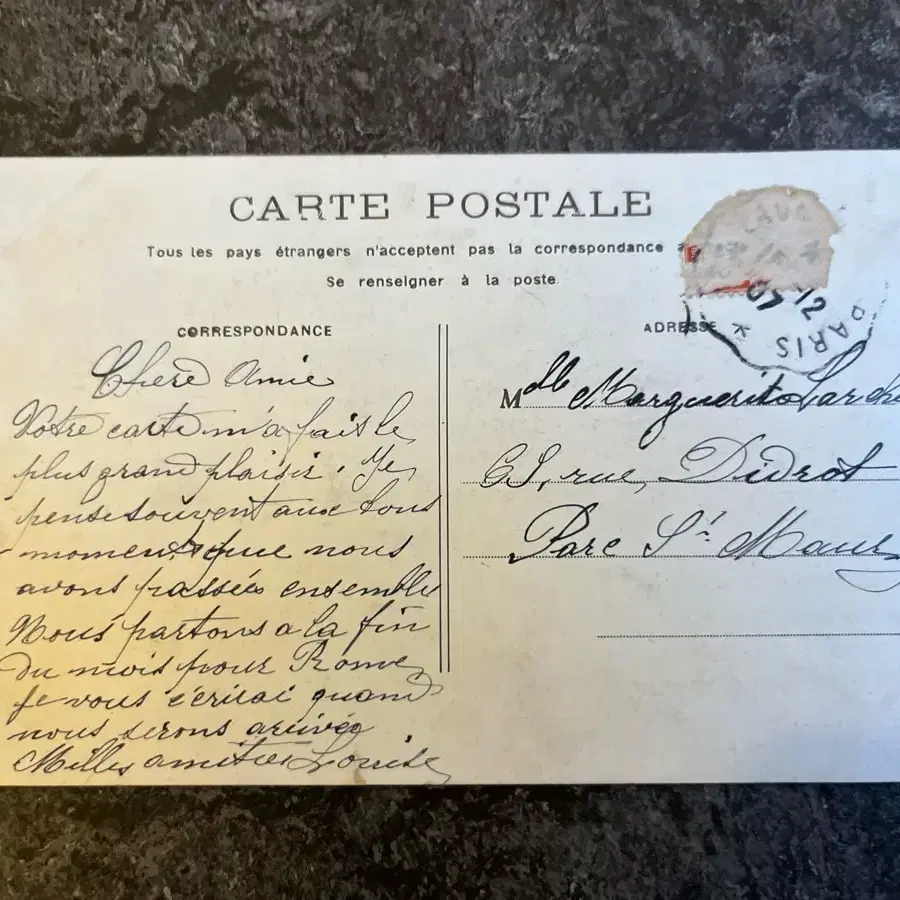 CARTE POSTALE
Tous les pays étrangers n'acceptent pas la correspondance
Se renseigner à la poste
CORRESPONDANCE
Chere Amie
Votre carte m'a fais le
plus grand plaisir. Je
pense souvent aux bons
moments que nous
avons passées ensemble
Nous partons a la fin
du mois pour Rome
je vous écrirai quand
nous serons arrivée
Milles amitiés Louise
ADRESSE
Mlle Marguerite
65, rue, Didrot
Parc St Maur
07 12
PARIS